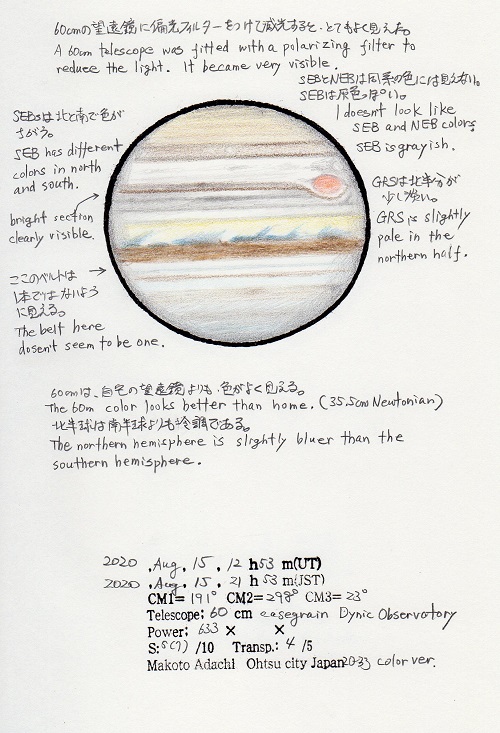 60cmの望遠鏡に偏光フィルターをつけて減光すると、とてもよく見えた。
A 60cm telescope was fitted with a polarizing filter to
reduce the light. It became very visible.
SEBとNEBは同系の色には見えない。
SEBは灰色っぽい。
I doesn't look like
SEB and NEB colors
SEB is grayish.
SEBsは北と南で色が
ちがう。
SEB has different
colors in north
and south.
bright section
clearly visible.
GRSは北半分が
少し淡い。
GRS is slightly
pale in the
northern half.
ここのベルトは
1本ではないよう
に見える。
The belt here
dosen't seem to be one.
60cmは、自宅の望遠鏡よりも、色がよく見える。
The 60m color looks better than home. (35.5cm Newtonian)
北半球は南半球よりも
である。
The northern hemisphere is slightly bluer than the
southern hemisphere.
2020 .Aug. 15, 12 h 53 m(UT)
2020 .Aug. 15, 21 h 53 m(JST)
CM1= 191° CM2= 298° CM3= 23°
Telescope; 60 cm casegrain Dynic Observatory
Power; 633 × ×
S: 5(7) /10 Transp.: 4 /5
Makoto Adachi Ohtsu city Japan 20-33 color ver.